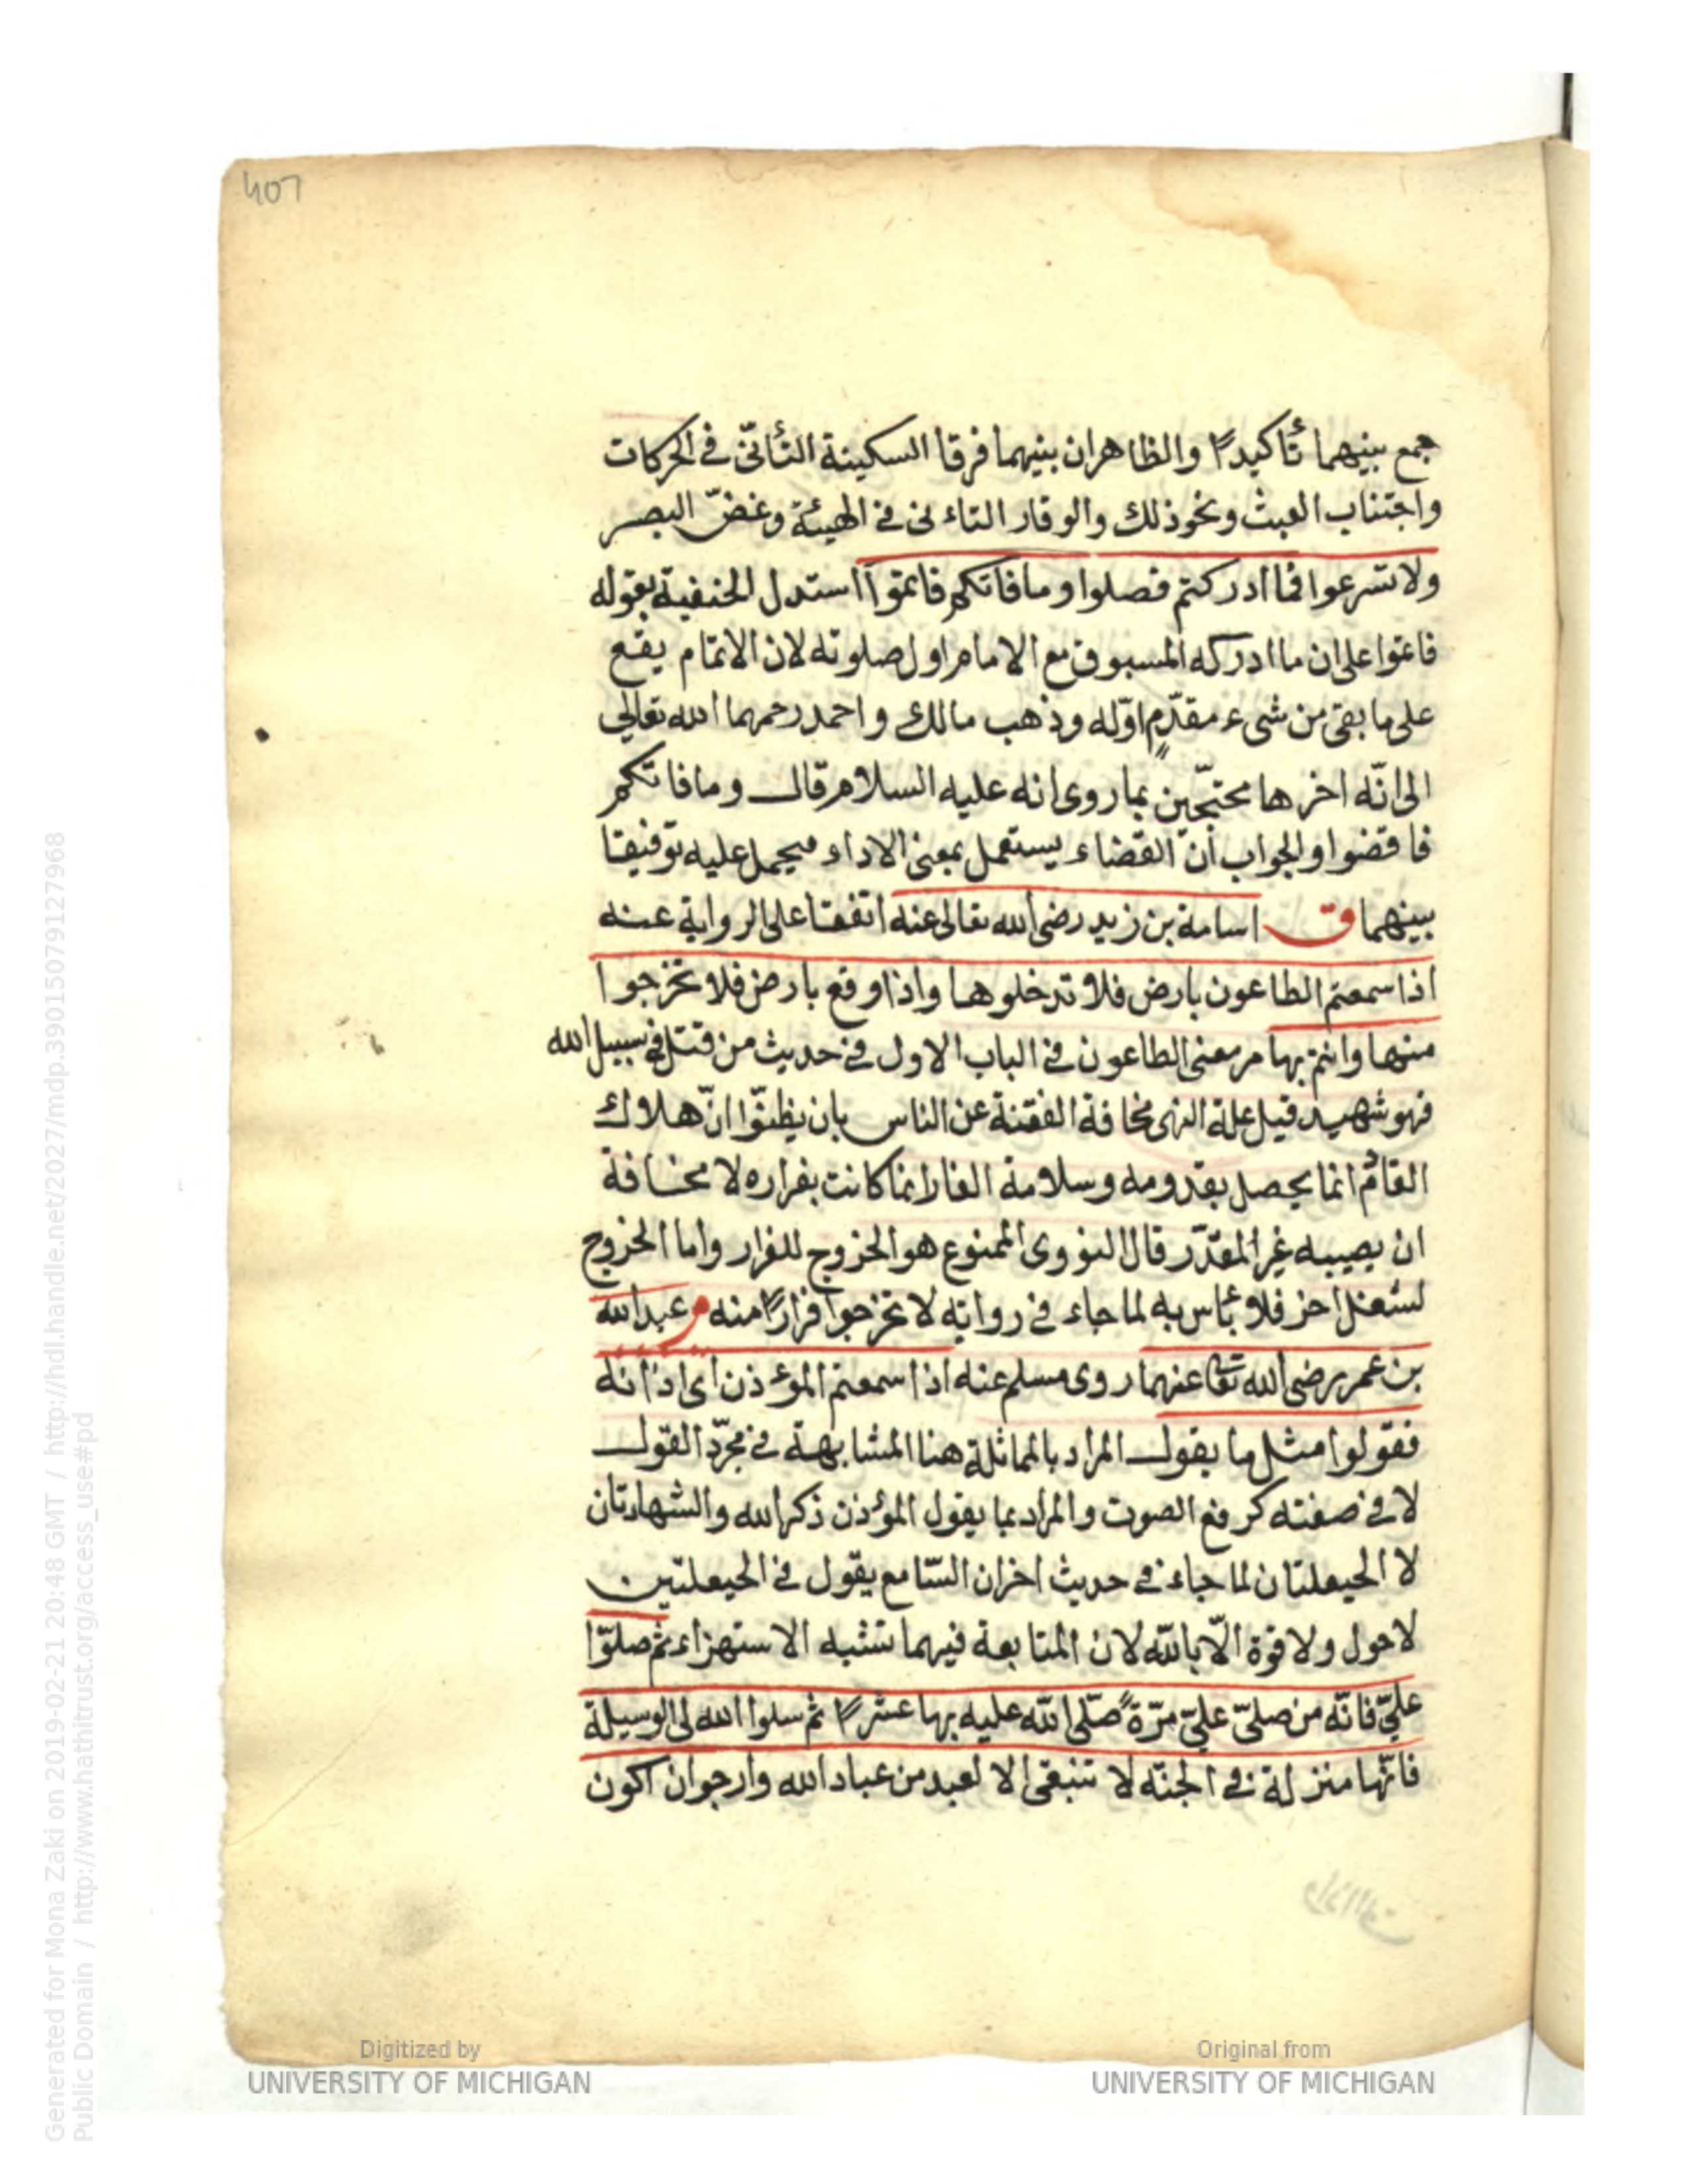 407
جمع بينهما تأكيدًا والظاهران بينهما فرقا السكينة التأنّى فى الحركات
واجتناب العبث ونحو ذلك والوقار التاءنى فى الهيئة وغضّ البصر
ولا تسرعوا فما ادركتم فصلوا وما فاتكم فاتموا استدل الحنفية بقوله
فاتموا على ان ما ادركه المسبوق مع الامام اول صلوته لان الاتمام يقع
على ما بقى من شىء مقدّم اوّله وذهب مالك واحمد رحمهما الله تعالى
الى انّه اخرها محتجّين بما روى انه عليه السلام قال وما فاتكم
فاقضوا والجواب أنّ القضاء يستعمل بمعنى الاداء فيحمل عليه توفيقا
بينهما ق اسامة بن زيد رضى الله تعالى عنه اتفقا على الرواية عنه
اذا سمعتم الطاعون بارض فلا تدخلوها واذا وقع بارض فلا تخرجوا
منها وانتم بها مر معنى الطاعون فى الباب الاول فى حديث من قتل فى سبيل الله
فهو شهيد قيل علة النهى مخافة الفتنة عن الناس بان يظنّوا انّ هلاك
القائم انما يحصل بقدومه وسلامة الفار انما كانت بفراره لا مخافة
ان يصيبه غير المقدّر قال النووى الممنوع هو الخروج للفرار واما الخروج
لشغل اخر فلا بأس به لما جاء فى رواية لا تخرجوا فرارًا منه م عبد الله
بن عمر رضى الله تعا عنهما روى مسلم عنه اذا سمعتم المؤذن اى اذانه
فقولوا مثل ما يقول المراد بالمماثلة هنا المشابهة فى مجرّد القول
لا فى صفته كرفع الصوت والمراد بما يقول المؤذن ذكر الله والشهادتان
لا الحيعلتان لما جاء فى حديث اخر ان السّامع يقول فى الحيعلتين
لا حول ولا قوة الّا بالله لان المتابعة فيهما تشبه الاستهزاء ثم صلوّا
علىّ فانّه من صلىّ علىّ مرّةً صلّى الله عليه بها عشرًا ثم سلوا الله لى الوسيلة
فانّها منزلة فى الجنّه لا تنبغى الا لعبد من عباد الله وارجوا ان اكون
Digitized by
UNIVERSITY OF MICHIGAN
Original from
UNIVERSITY OF MICHIGAN
Generated for Mona Zaki on 2019-02-21 20:48 GMT / http://hdl.handle.net/2027/mdp.39015079127968
Public Domain / http://www.hathitrust.org/access_use#pd